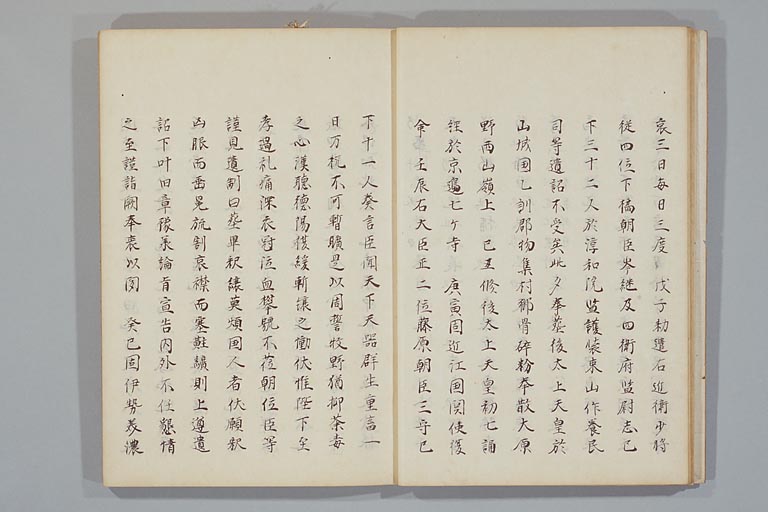 哀三日每日三度 戊子勅遣右近衛少将
従四位下橘朝臣岑継及四衛府監尉志已
下三十二人於淳和院監護装束山作養民
司等遺詔不受矣此夕奉葬後太上天皇於
山城国乙訓郡物集村御骨砕粉奉散大原
野西山嶺上 己丑修後太上天皇初七誦
経於京邊七ケ寺 庚寅固近江国関使復
命 壬辰右大臣正二位藤原朝臣三守已
下十一人癸言臣聞天下大器群生重畜一
日万機不可暫曠是以周誓牧野猶抑荼毒
之心漢聴徳陽猥緩斬縗之慟伏惟陛下至
孝過礼痛深衣冠泣血攀號不莅朝位臣等
謹見遺制曰葬畢釈縗莫煩国人者伏願釈
凶服而臨冕旒割哀襟而塞黈纊則上遵遺
詔下叶旧章稼穡論旨宣告内外不任懇情
之至謹詣闕奉表以聞 癸巳固伊勢美濃